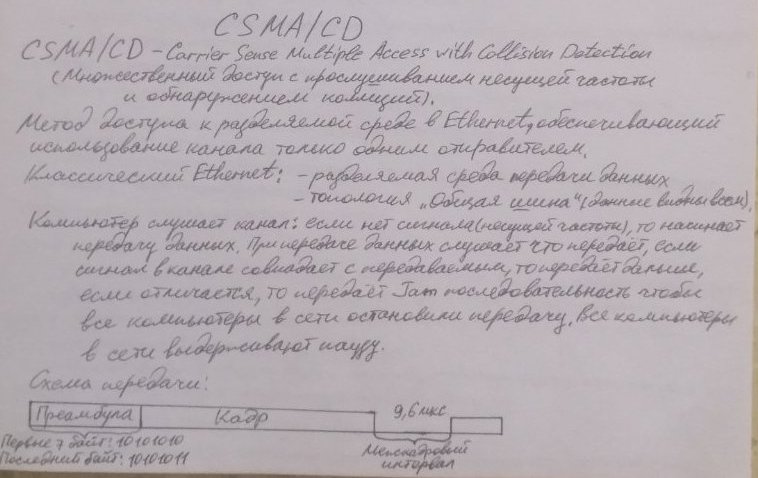 CSMA/CD
CSMA/CD - Carrier Sense Multiple Access with Collision Detection
(Множественный доступ с прослушиванием несущей частоты
и обнаружением коллизий).
Метод доступа к разделяемой среде в Ethernet, обеспечивающий
использование канала только одним отправителем.
Классический Ethernet: - разделяемая среда передачи данных
- топология „Общая шина“ (данные видны всем).
Компьютер слушает канал: если нет сигнала (несущей частоты), то начинает
передачу данных. При передаче данных слушает что передаёт, если
сигнал в канале совпадает с передаваемым, то передаёт дальше,
если отличается, то передаёт Jam последовательность чтобы
все компьютеры в сети остановили передачу. Все компьютеры
в сети выдерживают паузу.
Схема передачи:
Преамбула Кадр 9,6 мкс
Первые 7 байт: 10101010
Последний байт: 10101011
Межкадровый
интервал